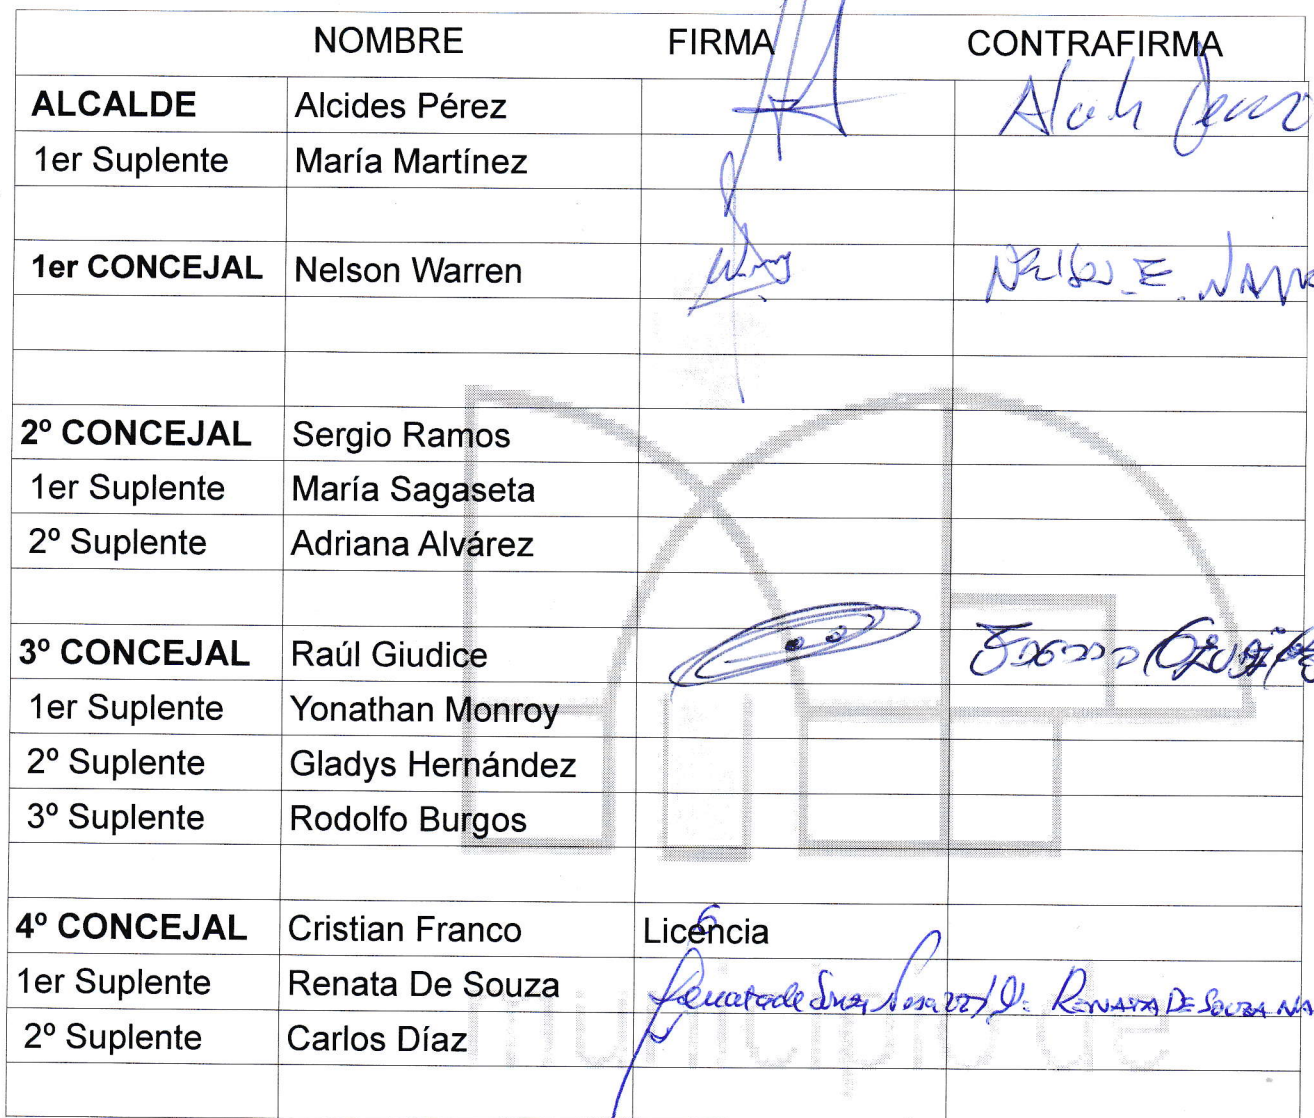 NOMBRE FIRMA CONTRAFIRMA
ALCALDE Alcides Pérez
1er Suplente María Martínez
1er CONCEJAL Nelson Warren
2º CONCEJAL Sergio Ramos
1er Suplente María Sagaseta
2º Suplente Adriana Alvárez
3º CONCEJAL Raúl Giudice
1er Suplente Yonathan Monroy
2º Suplente Gladys Hernández
3º Suplente Rodolfo Burgos
4º CONCEJAL Cristian Franco Licencia
1er Suplente Renata De Souza RENATA DE SOUZA NA
2º Suplente Carlos Díaz
municipio de